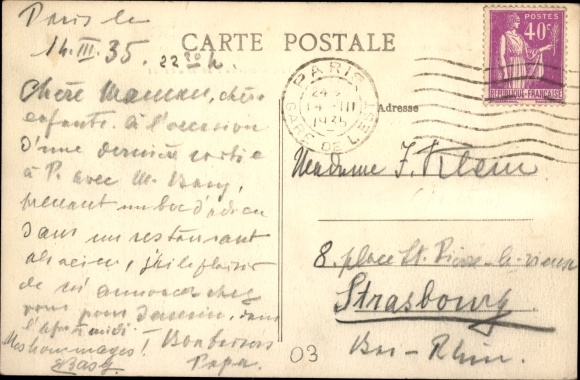 Paris le
14.III.35. 22 30 h.
CARTE POSTALE
POSTES
40c
RÉPUBLIQUE FRANÇAISE
PARIS
24
14 III
1935
GARE DE L'EST
Adresse
Chère Maman, chers
enfants. à l'occasion
d'une dernière sortie
à P. avec M. Basy,
prenant un boc d'adieu
dans un restaurant
alsacien, j'ai le plaisir
de m'annoncer chez
vous pour demain, dans
l'après midi.
Mes hommages! Bons baisers
Basy. Papa.
Madame J. Klein.
8. place St. Pierre-le-vieux
Strasbourg
Bas-Rhin.
03